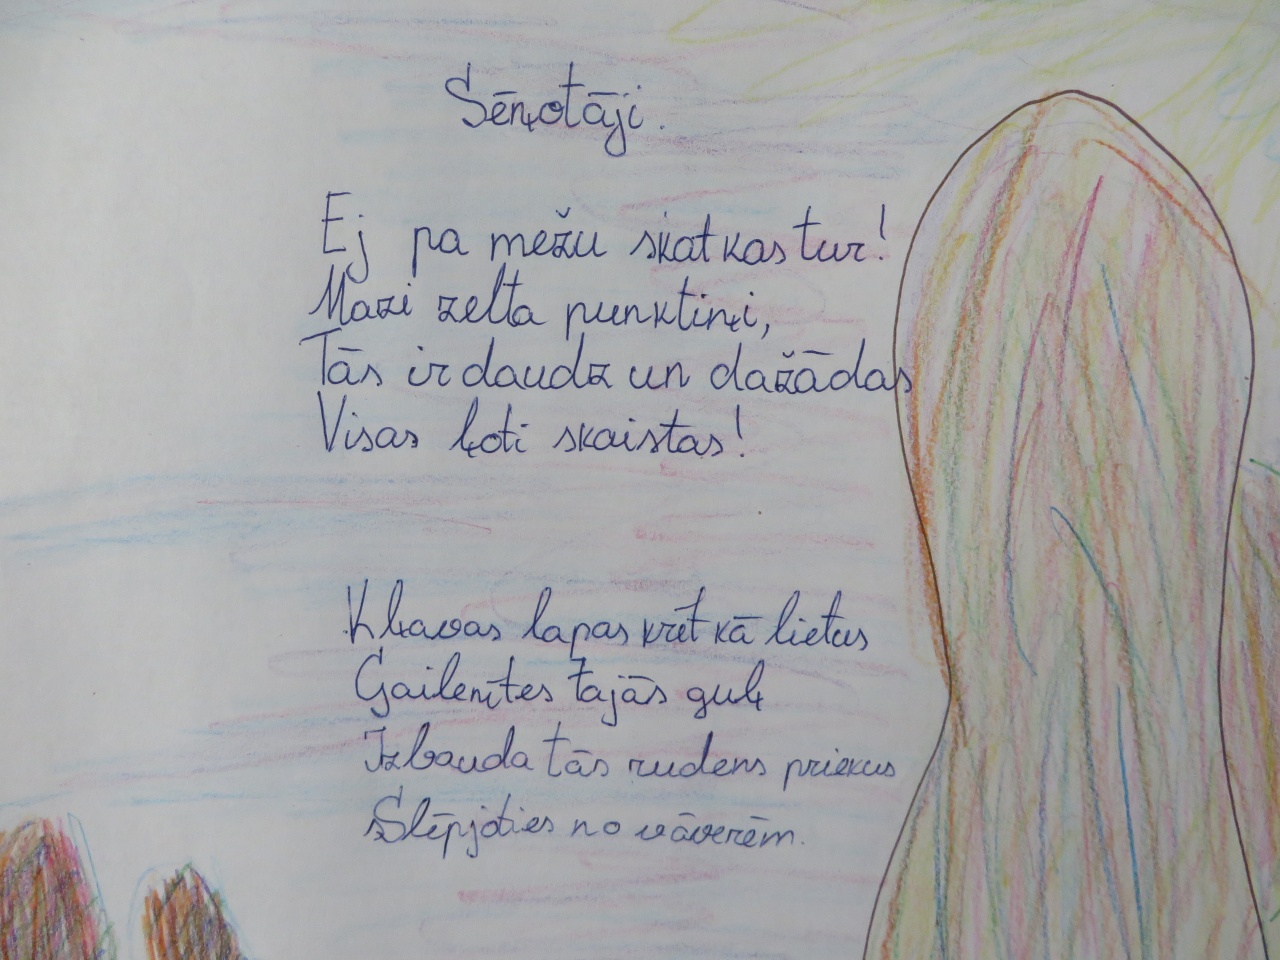 Sēņotāji.
Ej pa mežu skat kas tur!
Mazi zelta punktiņi,
Tās ir daudz un dažādas
Visas ļoti skaistas!
Kļavas lapas krīt kā lietus
Gailenītes tajās guļ
Izbauda tās rudens priekus
Slēpjoties no vāverēm.